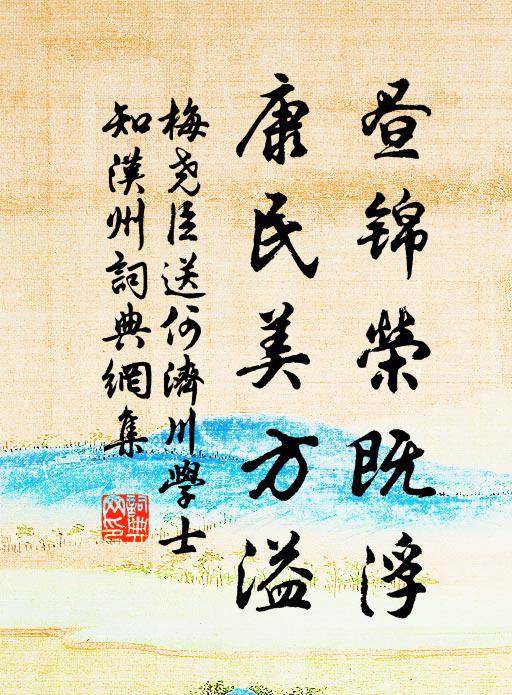 昼锦榮既浮
康民美方溢
梅尧臣送何濟川學士
知漢州詞典網集